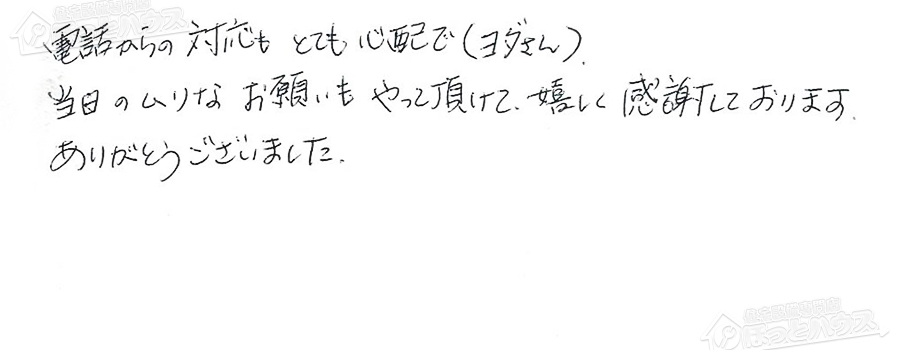 電話からの対応もとても心配で(ヨダさん).
当日のムリなお願いもやって頂けて、嬉しく感謝しております.
ありがとうございました.